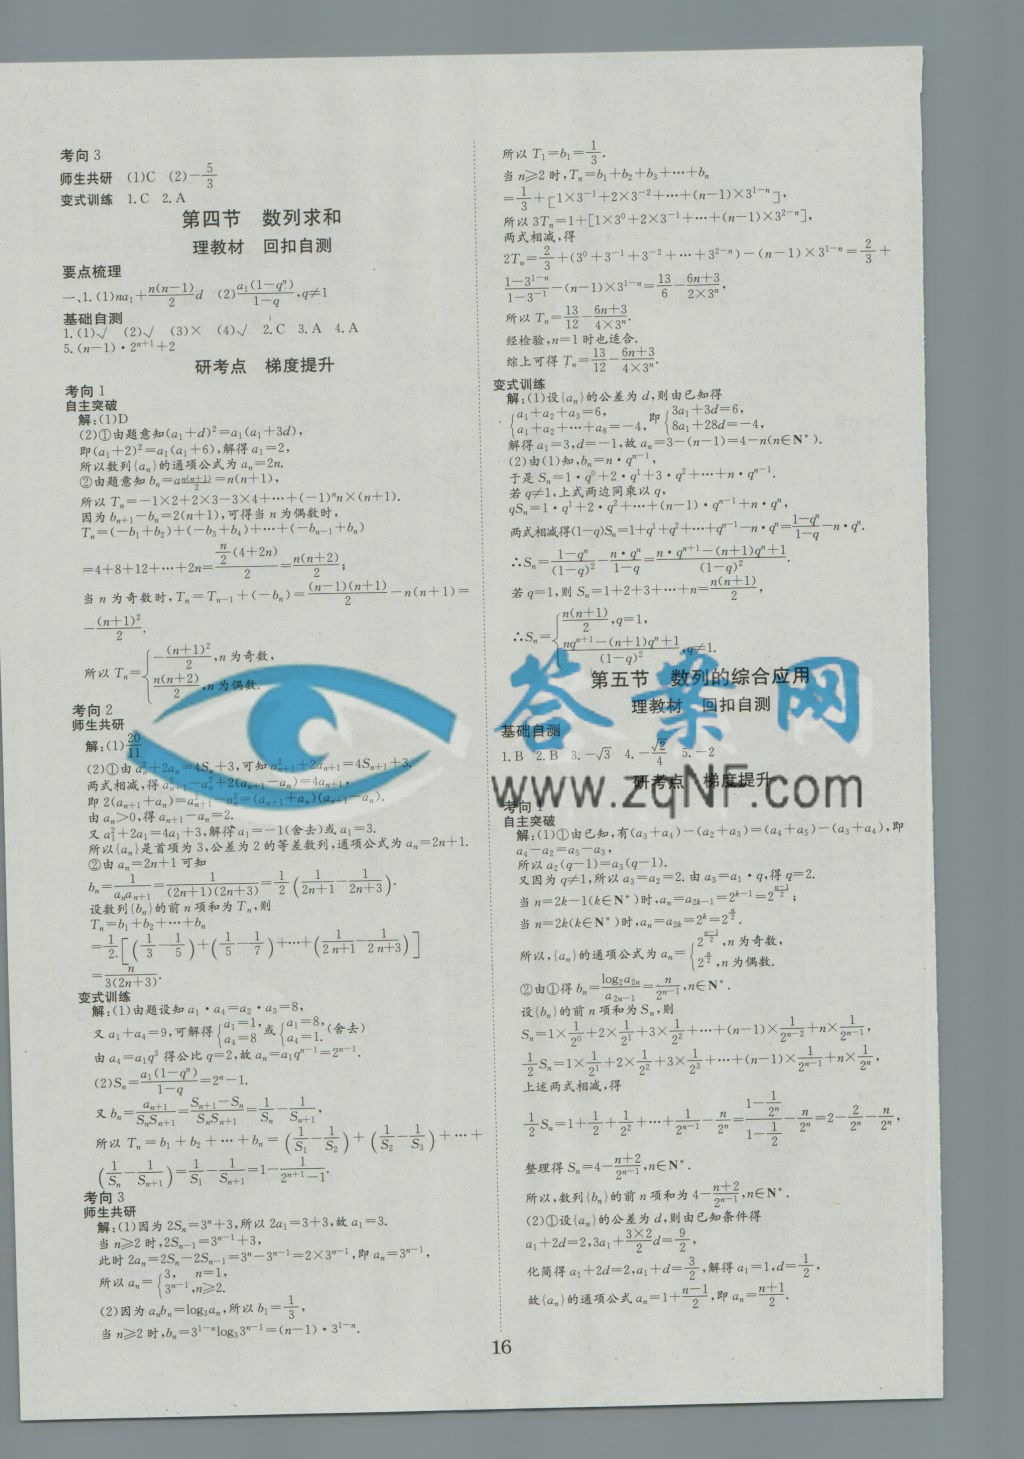 考向3
师生共研 (1)C (2)−5/3
变式训练 1.C 2.A
第四节 数列求和
理教材 回扣自测
要点梳理
一、1.(1)na₁+n(n−1)/2 d (2)a₁(1−qⁿ)/(1−q),q≠1
基础自测
1.(1)√ (2)√ (3)× (4)√ 2.C 3.A 4.A
5.(n−1)·2ⁿ⁺¹+2
研考点 梯度提升
考向1
自主突破
解:(1)D
(2)①由题意知(a₁+d)²=a₁(a₁+3d),
即(a₁+2)²=a₁(a₁+6),解得a₁=2,
所以数列{aₙ}的通项公式为aₙ=2n.
②由题意知bₙ=a_{n(n+1)/2}=n(n+1),
所以Tₙ=−1×2+2×3−3×4+…+(−1)ⁿn×(n+1).
因为bₙ₊₁−bₙ=2(n+1),可得当n为偶数时,
Tₙ=(−b₁+b₂)+(−b₃+b₄)+…+(−bₙ₋₁+bₙ)
=4+8+12+…+2n=(n/2)(4+2n)/2=n(n+2)/2;
当n为奇数时,Tₙ=Tₙ₋₁+(−bₙ)=(n−1)(n+1)/2−n(n+1)=
−(n+1)²/2.
所以Tₙ={−(n+1)²/2,n为奇数,
n(n+2)/2,n为偶数.
考向2
师生共研
解:(1)20/11
(2)①由aₙ²+2aₙ=4Sₙ+3,可知aₙ₊₁²+2aₙ₊₁=4Sₙ₊₁+3.
两式相减,得aₙ₊₁²−aₙ²+2(aₙ₊₁−aₙ)=4aₙ₊₁,
即2(aₙ₊₁+aₙ)=aₙ₊₁²−aₙ²=(aₙ₊₁+aₙ)(aₙ₊₁−aₙ).
由aₙ>0,得aₙ₊₁−aₙ=2.
又a₁²+2a₁=4a₁+3,解得a₁=−1(舍去)或a₁=3.
所以{aₙ}是首项为3,公差为2的等差数列,通项公式为aₙ=2n+1.
②由aₙ=2n+1可知
bₙ=1/(aₙaₙ₊₁)=1/((2n+1)(2n+3))=1/2(1/(2n+1)−1/(2n+3)).
设数列{bₙ}的前n项和为Tₙ,则
Tₙ=b₁+b₂+…+bₙ
=1/2·[(1/3−1/5)+(1/5−1/7)+…+(1/(2n+1)−1/(2n+3))]
=n/(3(2n+3)).
变式训练
解:(1)由题设知a₁·a₄=a₂·a₃=8,
又a₁+a₄=9,可解得{a₁=1,a₄=8 或{a₁=8,a₄=1.(舍去)
由a₄=a₁q³得公比q=2,故aₙ=a₁qⁿ⁻¹=2ⁿ⁻¹.
(2)Sₙ=a₁(1−qⁿ)/(1−q)=2ⁿ−1.
又bₙ=aₙ₊₁/(SₙSₙ₊₁)=(Sₙ₊₁−Sₙ)/(SₙSₙ₊₁)=1/Sₙ−1/Sₙ₊₁,
所以Tₙ=b₁+b₂+…+bₙ=(1/S₁−1/S₂)+(1/S₂−1/S₃)+…+
(1/Sₙ−1/Sₙ₊₁)=1/S₁−1/Sₙ₊₁=1−1/(2ⁿ⁺¹−1).
考向3
师生共研
解:(1)因为2Sₙ=3ⁿ+3,所以2a₁=3+3,故a₁=3.
当n≥2时,2Sₙ₋₁=3ⁿ⁻¹+3,
此时2aₙ=2Sₙ−2Sₙ₋₁=3ⁿ−3ⁿ⁻¹=2×3ⁿ⁻¹,即aₙ=3ⁿ⁻¹,
所以aₙ={3, n=1,
3ⁿ⁻¹,n≥2.
(2)因为aₙbₙ=log₃aₙ,所以b₁=1/3,
当n≥2时,bₙ=3¹⁻ⁿlog₃3ⁿ⁻¹=(n−1)·3¹⁻ⁿ.
所以T₁=b₁=1/3.
当n≥2时,Tₙ=b₁+b₂+b₃+…+bₙ
=1/3+[1×3⁻¹+2×3⁻²+…+(n−1)×3¹⁻ⁿ],
所以3Tₙ=1+[1×3⁰+2×3⁻¹+…+(n−1)×3²⁻ⁿ],
两式相减,得
2Tₙ=2/3+(3⁰+3⁻¹+3⁻²+…+3²⁻ⁿ)−(n−1)×3¹⁻ⁿ=2/3+
(1−3¹⁻ⁿ)/(1−3⁻¹)−(n−1)×3¹⁻ⁿ=13/6−(6n+3)/(2×3ⁿ),
所以Tₙ=13/12−(6n+3)/(4×3ⁿ).
经检验,n=1时也适合.
综上可得Tₙ=13/12−(6n+3)/(4×3ⁿ).
变式训练
解:(1)设{aₙ}的公差为d,则由已知得
{a₁+a₂+a₃=6,a₁+a₂+…+a₈=−4, 即{3a₁+3d=6,8a₁+28d=−4.
解得a₁=3,d=−1,故aₙ=3−(n−1)=4−n(n∈N*).
(2)由(1)知,bₙ=n·qⁿ⁻¹,
于是Sₙ=1·q⁰+2·q¹+3·q²+…+n·qⁿ⁻¹.
若q≠1,上式两边同乘以q,
qSₙ=1·q¹+2·q²+…+(n−1)·qⁿ⁻¹+n·qⁿ,
两式相减得(1−q)Sₙ=1+q¹+q²+…+qⁿ⁻¹−n·qⁿ=(1−qⁿ)/(1−q)−n·qⁿ.
∴Sₙ=(1−qⁿ)/(1−q)²−n·qⁿ/(1−q)=(n·qⁿ⁺¹−(n+1)qⁿ+1)/(1−q)².
若q=1,则Sₙ=1+2+3+…+n=n(n+1)/2,
∴Sₙ={n(n+1)/2,q=1,
(nqⁿ⁺¹−(n+1)qⁿ+1)/(1−q)²,q≠1.
第五节 数列的综合应用
理教材 回扣自测
基础自测
1.B 2.B 3.−√3 4.−√2/4 5.−2
研考点 梯度提升
考向1
自主突破
解:(1)①由已知,有(a₃+a₄)−(a₂+a₃)=(a₄+a₅)−(a₃+a₄),即
a₄−a₂=a₅−a₃,
所以a₂(q−1)=a₃(q−1).
又因为q≠1,所以a₃=a₂=2.由a₃=a₁·q,得q=2.
当n=2k−1(k∈N*)时,aₙ=a₂ₖ₋₁=2ᵏ⁻¹=2^((n−1)/2);
当n=2k(k∈N*)时,aₙ=a₂ₖ=2ᵏ=2^(n/2).
所以,{aₙ}的通项公式为aₙ={2^((n−1)/2),n为奇数,
2^(n/2),n为偶数.
②由①得bₙ=log₂a₂ₙ/a₂ₙ₋₁=n/2ⁿ⁻¹,n∈N*.
设{bₙ}的前n项和为Sₙ,则
Sₙ=1×1/2⁰+2×1/2¹+3×1/2²+…+(n−1)×1/2ⁿ⁻²+n×1/2ⁿ⁻¹,
1/2Sₙ=1×1/2¹+2×1/2²+3×1/2³+…+(n−1)×1/2ⁿ⁻¹+n×1/2ⁿ,
上述两式相减,得
1/2Sₙ=1+1/2+1/2²+…+1/2ⁿ⁻¹−n/2ⁿ=(1−1/2ⁿ)/(1−1/2)−n/2ⁿ=2−2/2ⁿ−n/2ⁿ,
整理得Sₙ=4−(n+2)/2ⁿ⁻¹,n∈N*.
所以,数列{bₙ}的前n项和为4−(n+2)/2ⁿ⁻¹,n∈N*.
(2)①设{aₙ}的公差为d,则由已知条件得
a₁+2d=2,3a₁+(3×2/2)d=9/2,
化简得a₁+2d=2,a₁+d=3/2,解得a₁=1,d=1/2,
故{aₙ}的通项公式aₙ=1+(n−1)/2,即aₙ=(n+1)/2.
16
答案网
www.zqNF.com